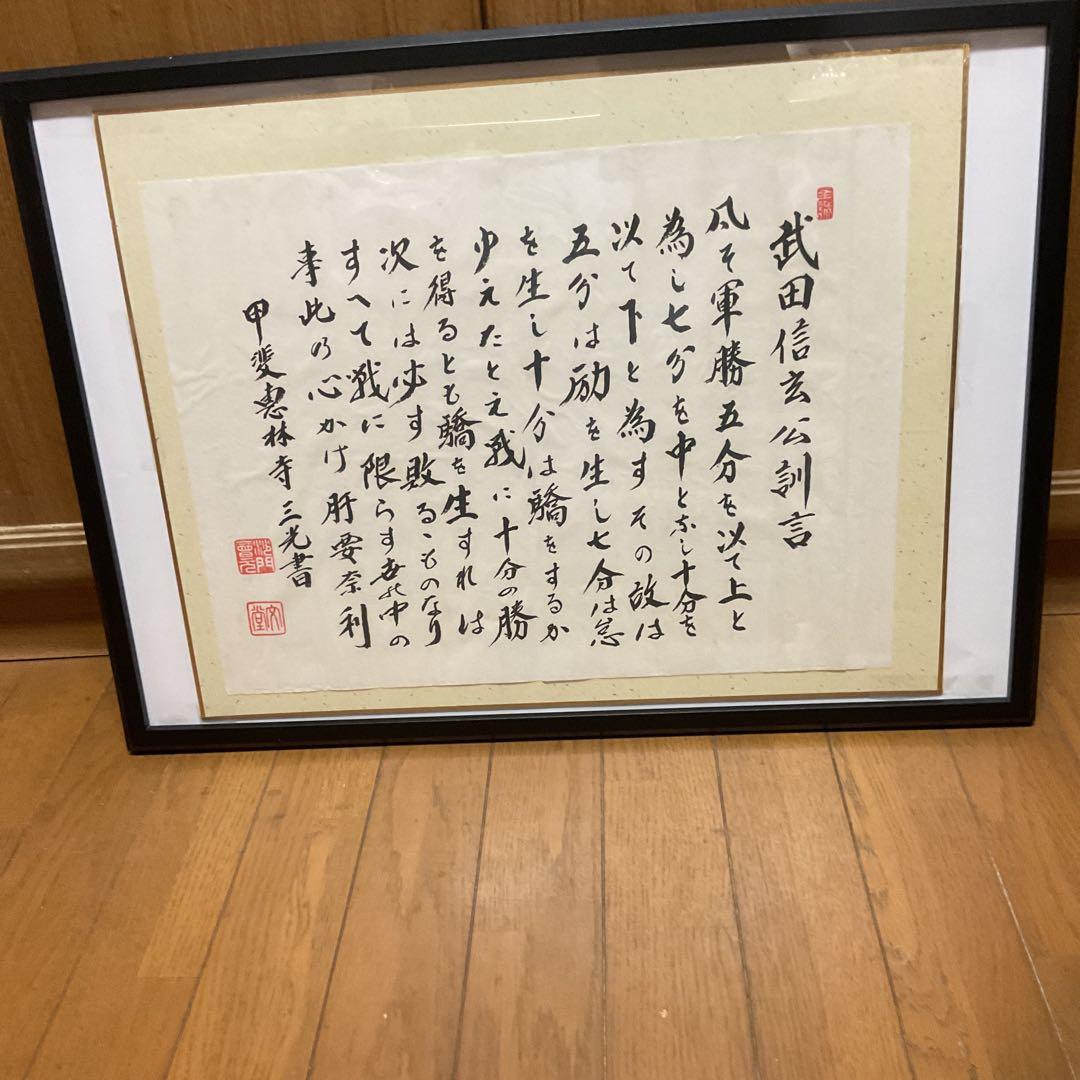 武田信玄公訓言
凡そ軍勝五分を以て上と
為し七分を中と為し十分を
以て下と為すその故は
五分は励を生し七分は怠
を生し十分は驕をするか
少えたとえ戦に十分の勝
を得るとも驕を生すれは
次には必す敗るゝものなり
すへて戦に限らす世の中の
事此の心かけ肝要奈利
甲斐惠林寺 三光書